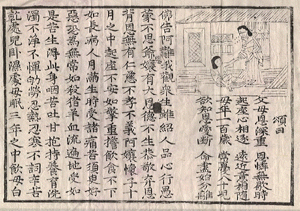 頌曰
父母恩深重 恩憐無歇時
起坐心相逐 遠近意相隨
母年一百歲 常憂八十兒
欲知恩愛斷 命盡始分離
佛告阿難我觀衆生雖紹人品心行愚
蒙不思爺孃有大恩德不生恭敬弃恩
背恩無有仁慈不孝不義阿孃懷子十
月之中起坐不安如擎重擔飲食不下
如長病人月滿生時受諸痛苦須臾好
惡恐爲無常如殺猪羊血流遍地受如
是苦生得此身咽苦吐甘抱持養育洗
濯不淨不憚劬勞忍熱忍寒不辭辛苦
乾處兒卧濕處母眠三年之中飲母白